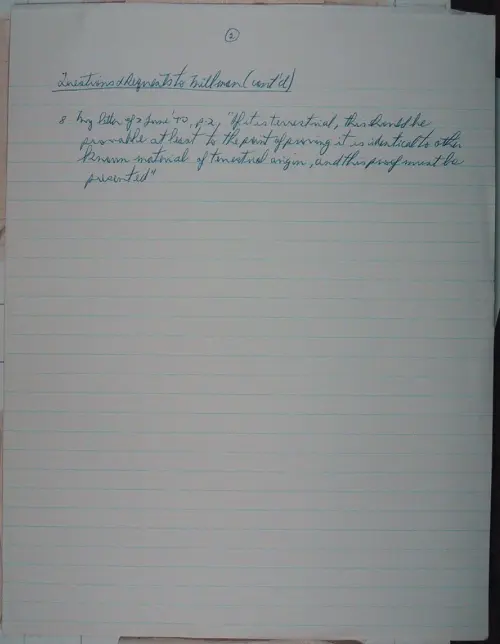 2
Questions & Requests to Millman (cont'd)
8 My letter of 2 June '70, p.2, "If it is terrestrial, this should be
provable at least to the point of proving it is identical to other
known material of terrestrial origin, and this proof must be
presented"